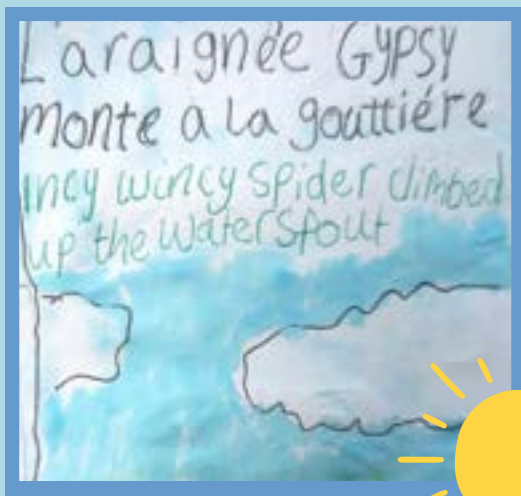 L'araignée GYPSY
monte a la gouttiére
incy wincy spider climbed
up the waterspout